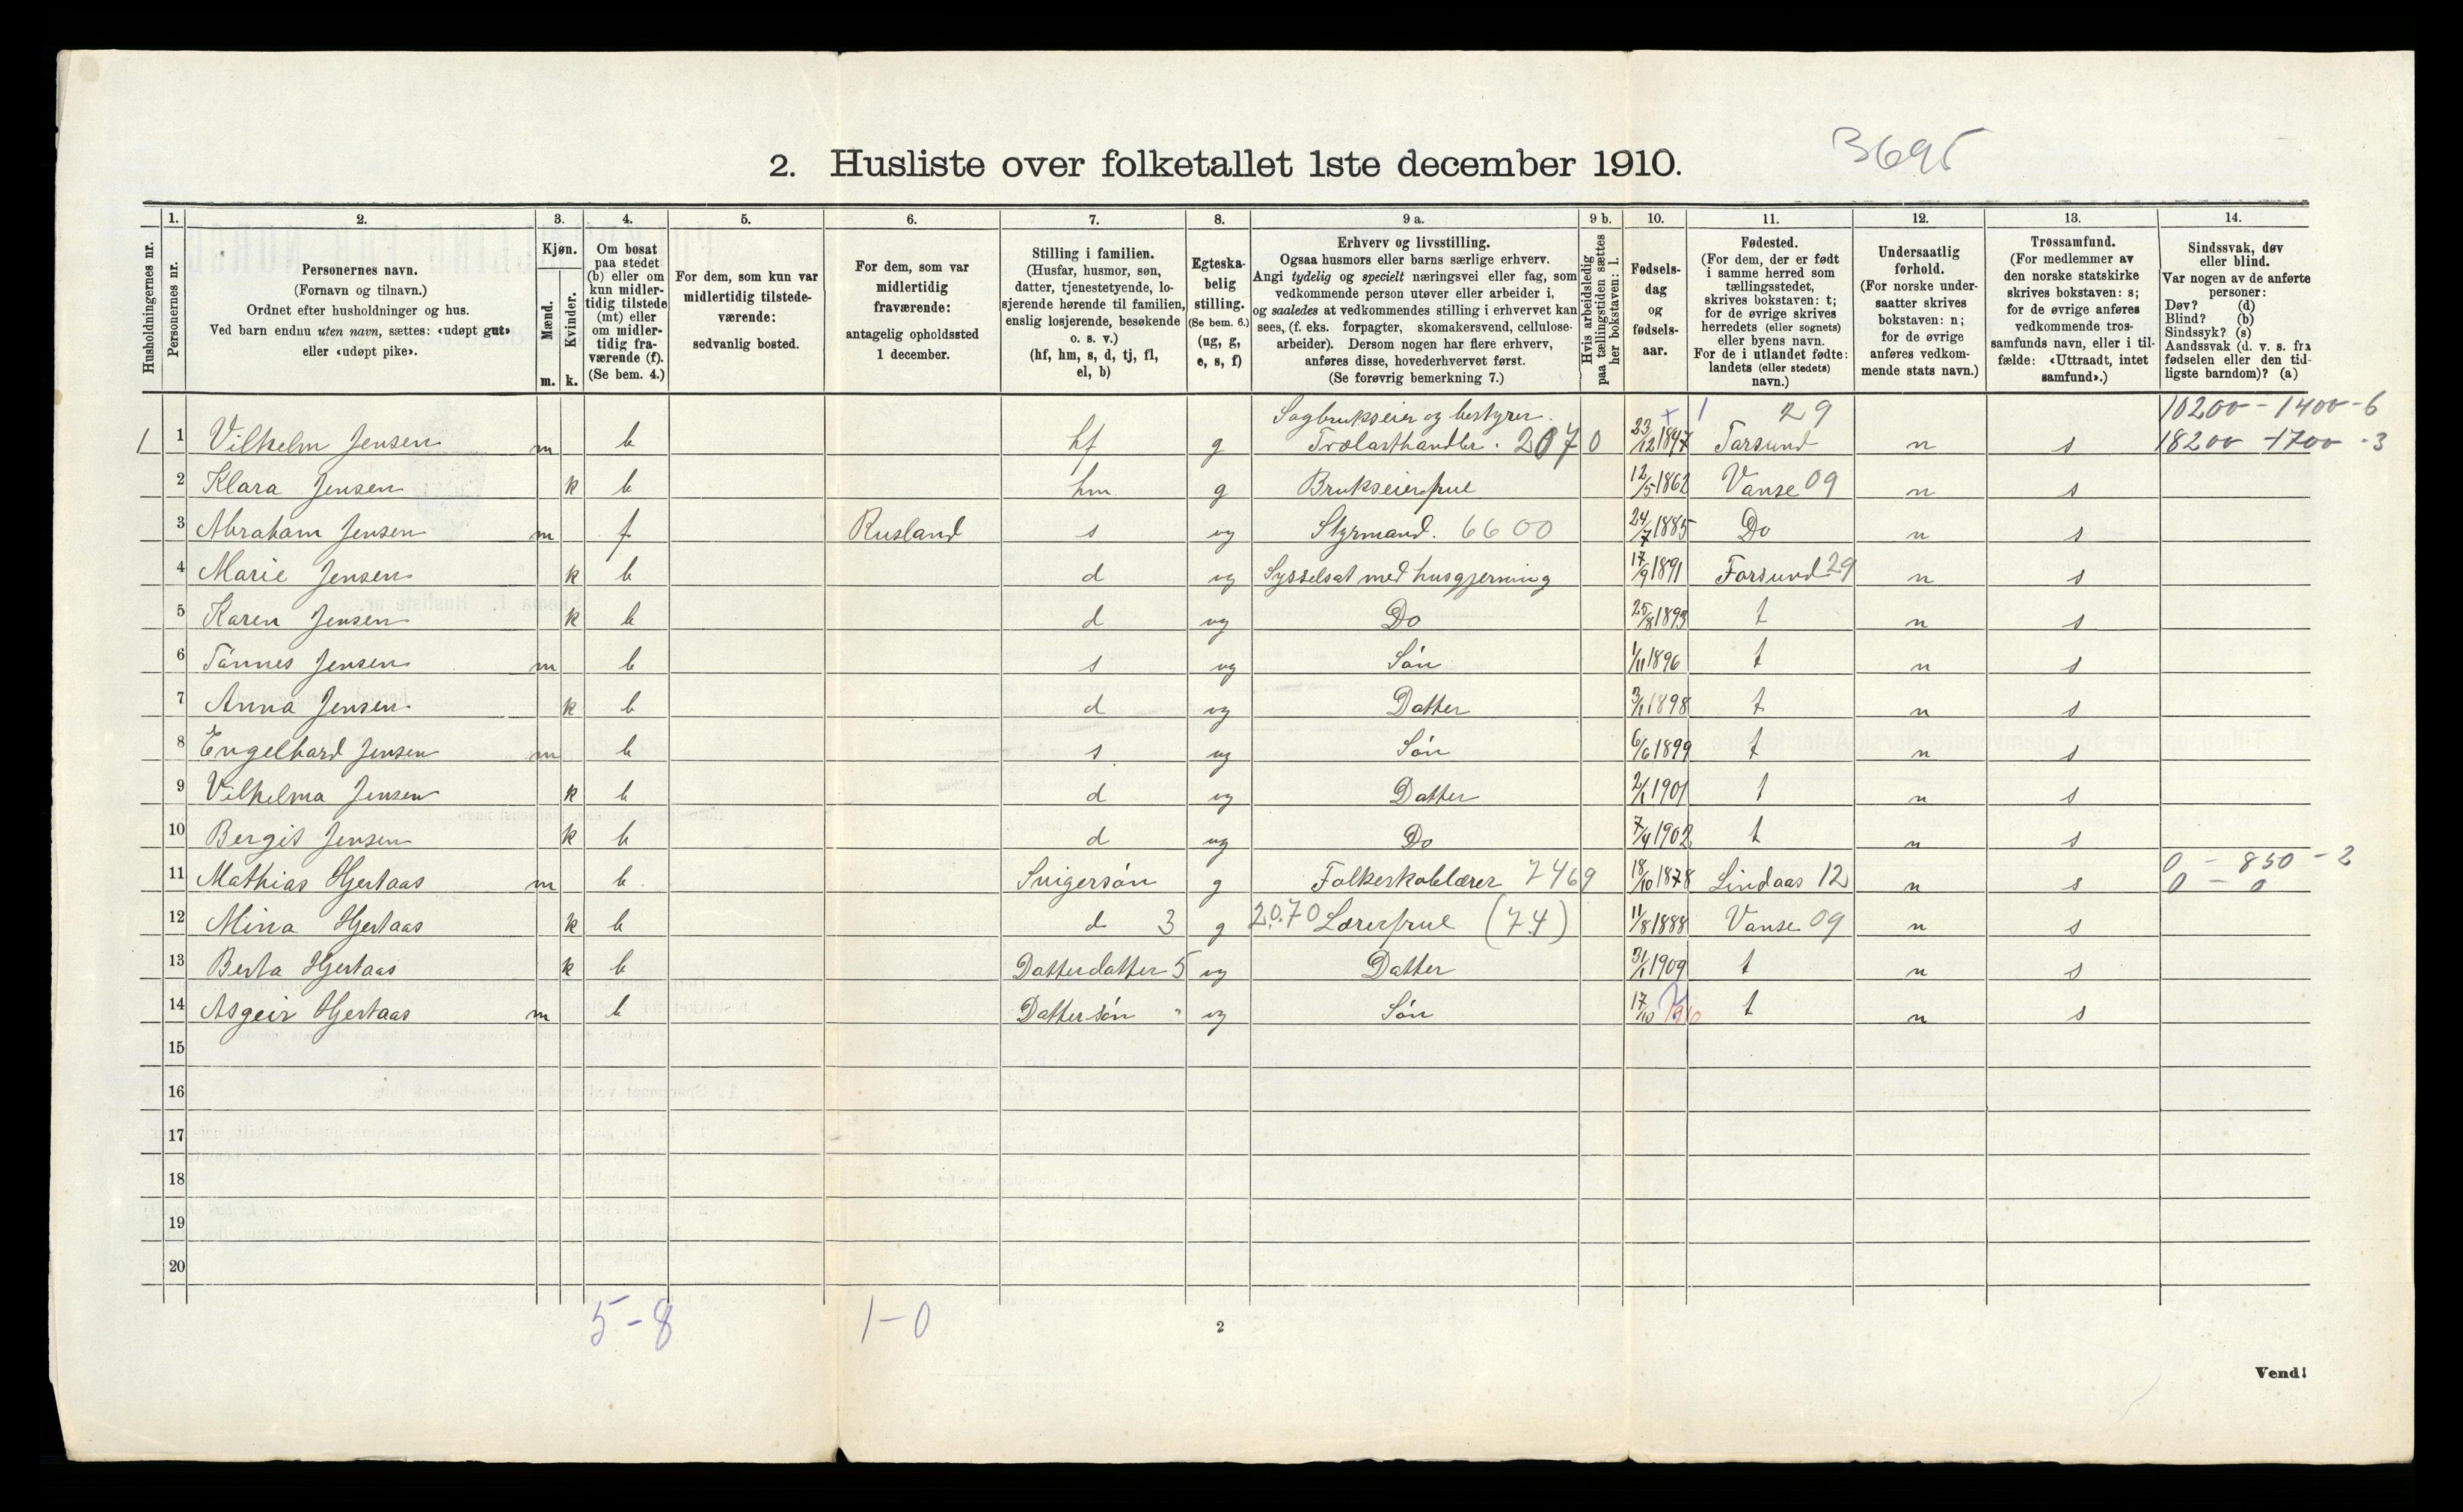 2. Husliste over folketallet 1ste december 1910.
3695
Husholdningernes nr.
1.
Personernes nr.
2.
Personernes navn.
(Fornavn og tilnavn.)
Ordnet efter husholdninger og hus.
Ved barn endnu uten navn, sættes: «udøpt gut»
eller «udøpt pike».
3.
Kjøn.
Mænd.
Kvinder.
m. k.
4.
Om bosat
paa stedet
(b) eller om
kun midler-
tidig tilstede
(mt) eller
om midler-
tidig fra-
værende (f).
(Se bem. 4.)
5.
For dem, som kun var
midlertidig tilstede-
værende:
sedvanlig bosted.
6.
For dem, som var
midlertidig
fraværende:
antagelig opholdssted
1 december.
7.
Stilling i familien.
(Husfar, husmor, søn,
datter, tjenestetyende, lo-
sjerende hørende til familien,
enslig losjerende, besøkende
o. s. v.)
(hf, hm, s, d, tj, fl,
el, b)
8.
Egteska-
belig
stilling.
(Se bem. 6.)
(ug, g,
e, s, f)
9 a.
Erhverv og livsstilling.
Ogsaa husmors eller barns særlige erhverv.
Angi tydelig og specielt næringsvei eller fag, som
vedkommende person utøver eller arbeider i,
og saaledes at vedkommendes stilling i erhvervet kan
sees, (f. eks. forpagter, skomakersvend, cellulose-
arbeider). Dersom nogen har flere erhverv,
anføres disse, hovederhvervet først.
(Se forøvrig bemerkning 7.)
9 b.
Hvis arbeidsledig
paa tællingstiden sættes
her bokstaven: l.
10.
Fødsels-
dag
og
fødsels-
aar.
11.
Fødested.
(For dem, der er født
i samme herred som
tællingsstedet,
skrives bokstaven: t;
for de øvrige skrives
herredets (eller sognets)
eller byens navn.
For de i utlandet fødte:
landets (eller stedets)
navn.)
12.
Undersaatlig
forhold.
(For norske under-
saatter skrives
bokstaven: n;
for de øvrige
anføres vedkom-
mende stats navn.)
13.
Trossamfund.
(For medlemmer av
den norske statskirke
skrives bokstaven: s;
for de øvrige anføres
vedkommende tros-
samfunds navn, eller i til-
fælde: «Uttraadt, intet
samfund».)
14.
Sindssvak, døv
eller blind.
Var nogen av de anførte
personer:
Døv? (d)
Blind? (b)
Sindssyk? (s)
Aandssvak (d. v. s. fra
fødselen eller den tid-
ligste barndom)? (a)
Sagbrukseier og bestyrer. 29 10200 - 1400 - 6
1 1 Vilhelm Jensen m b hf g Trælasthandler. 2070 23/12 1847 Farsund n s 18200 - 1700 - 3
2 Klara Jensen k b hm g Brukseierfrue 12/5 1862 Vanse 09 n s
3 Abraham Jensen m f Rusland s ug Styrmand. 6600 24/7 1885 Do n s
4 Marie Jensen k b d ug Sysselsat med husgjerning 17/9 1891 Farsund 29 n s
5 Karen Jensen k b d ug Do 25/8 1893 t n s
6 Tønnes Jensen m b s ug Søn 1/11 1896 t n s
7 Anna Jensen k b d ug Datter 3/1 1898 t n s
8 Engelhard Jensen m b s ug Søn 6/6 1899 t n s
9 Vilhelma Jensen k b d ug Datter 2/1 1901 t n s
10 Bergit Jensen k b d ug Do 7/4 1902 t n s
0 - 850 - 2
11 Mathias Hjertaas m b Svigersøn g Folkeskolelærer 7469 18/10 1878 Lindaas 12 n s 0 - 0
12 Mina Hjertaas k b d 3 g 20.70 Lærerfrue (74) 11/8 1888 Vanse 09 n s
13 Berta Hjertaas k b Datterdatter 5 ug Datter 31/1 1909 t n s
14 Asgeir Hjertaas m b Dattersøn " ug Søn 17/10 1910 t n s
15
16
17
18
19
20
5 - 8 1 - 0
2
Vend!